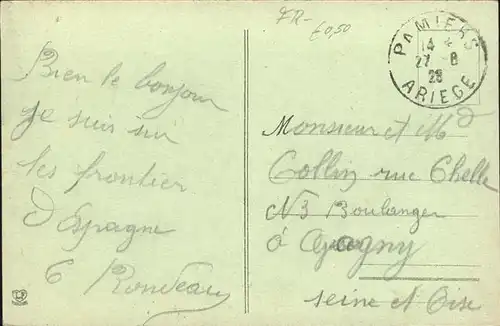 FR-
£0,50
PAMIERS
14
27-8
28
ARIEGE
Bien le bonjour
je suis sur
les frontier
D'Espagne
Rondeau
Monsieur et M
Collin rue Chelle
N3 Boulanger
à
seine et Oise